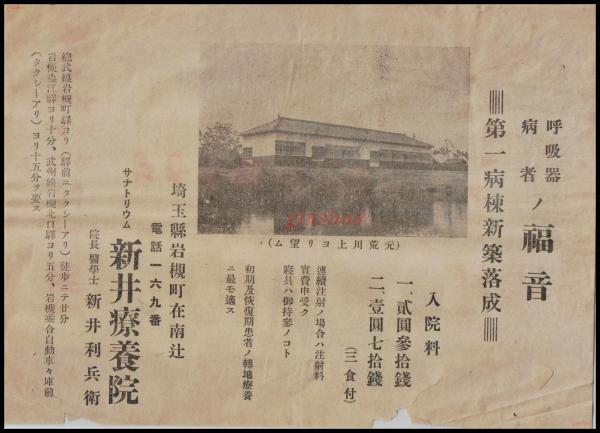 呼吸器
病者
ノ福音
第一病棟新築落成
入院料
一、貳圓參拾錢
二、壹圓七拾錢
（三食付）
連續注射ノ場合ハ注射料
實費申受ク
寢具ハ御持參ノコト
初期及恢復期患者ノ轉地療養
ニ最モ適ス
（元荒川上ヨリ望ム）
ginshad
埼玉縣岩槻町在南辻
電話一六九番
サナトリウム
新井療養院
院長 醫學士 新井利兵衛
總武線岩槻町驛ヨリ（驛前ニタクシーアリ）徒歩ニテ廿分
岩槻乘合自動車々庫前
（タクシーアリ）ヨリ十五分ヲ要ス